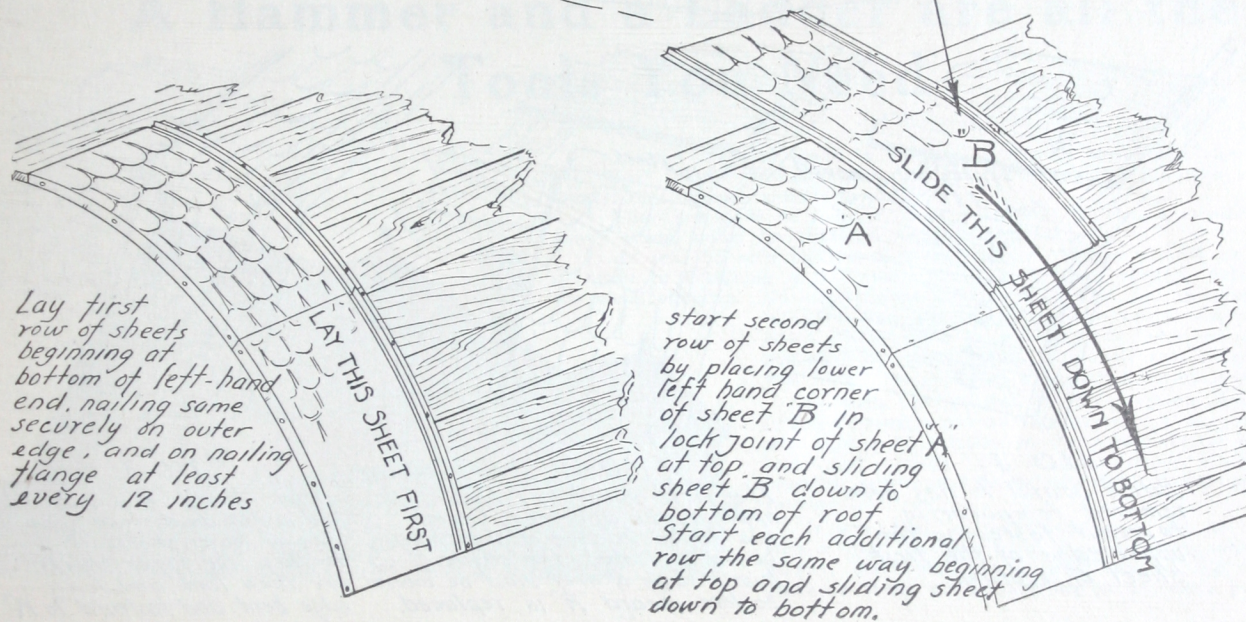 Lay first
row of sheets
beginning at
bottom of left-hand
end, nailing same
securely on outer
edge, and on nailing
flange at least
every 12 inches
LAY THIS SHEET FIRST
"B"
SLIDE THIS SHEET DOWN TO BOTTOM
"A"
start second
row of sheets
by placing lower
left hand corner
of sheet "B" in
lock joint of sheet "A"
at top and sliding
sheet "B" down to
bottom of roof
Start each additional
row the same way beginning
at top and sliding sheet
down to bottom.